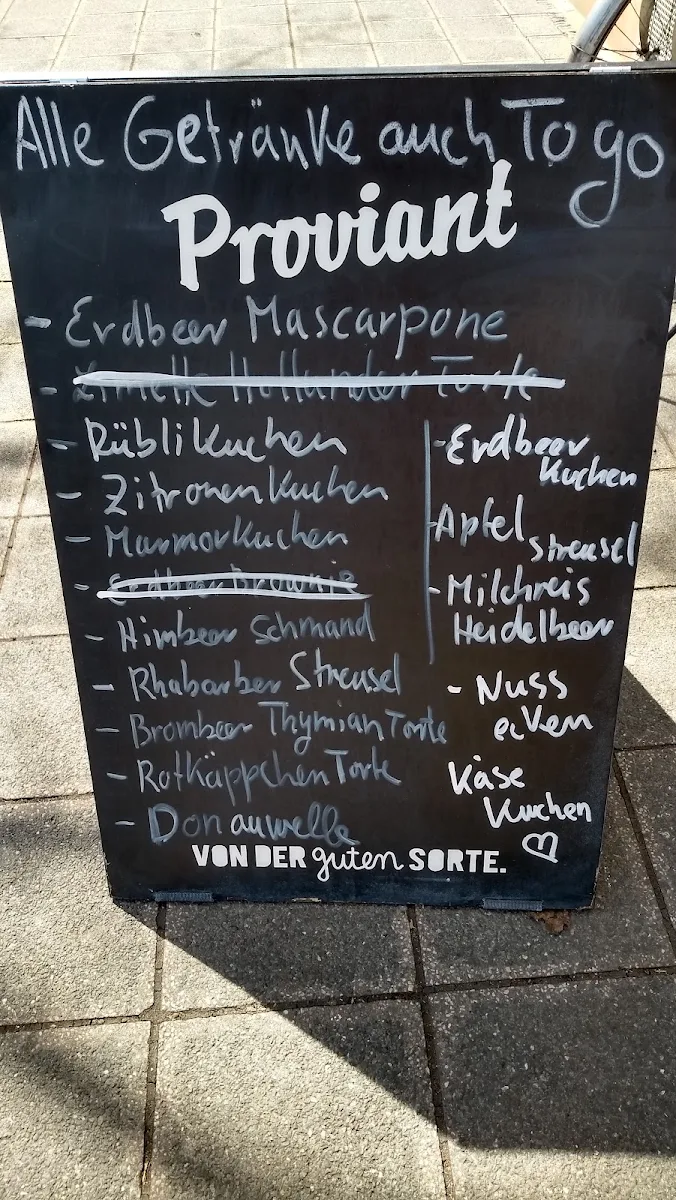 Alle Getränke auch To go
Proviant
- Erdbeer Mascarpone
- Limette Hollunder Torte
- Rübli Kuchen
- Zitronen Kuchen
- Marmorkuchen
- Erdbeer Brownie
- Himbeer Schmand
- Rhabarber Streusel
- Brombeer Thymian Torte
- Rotkäppchen Torte
- Donauwelle
- Erdbeer
Kuchen
- Apfel
streusel
- Milchreis
Heidelbeer
- Nuss
ecken
Käse
Kuchen
VON DER guten SORTE.